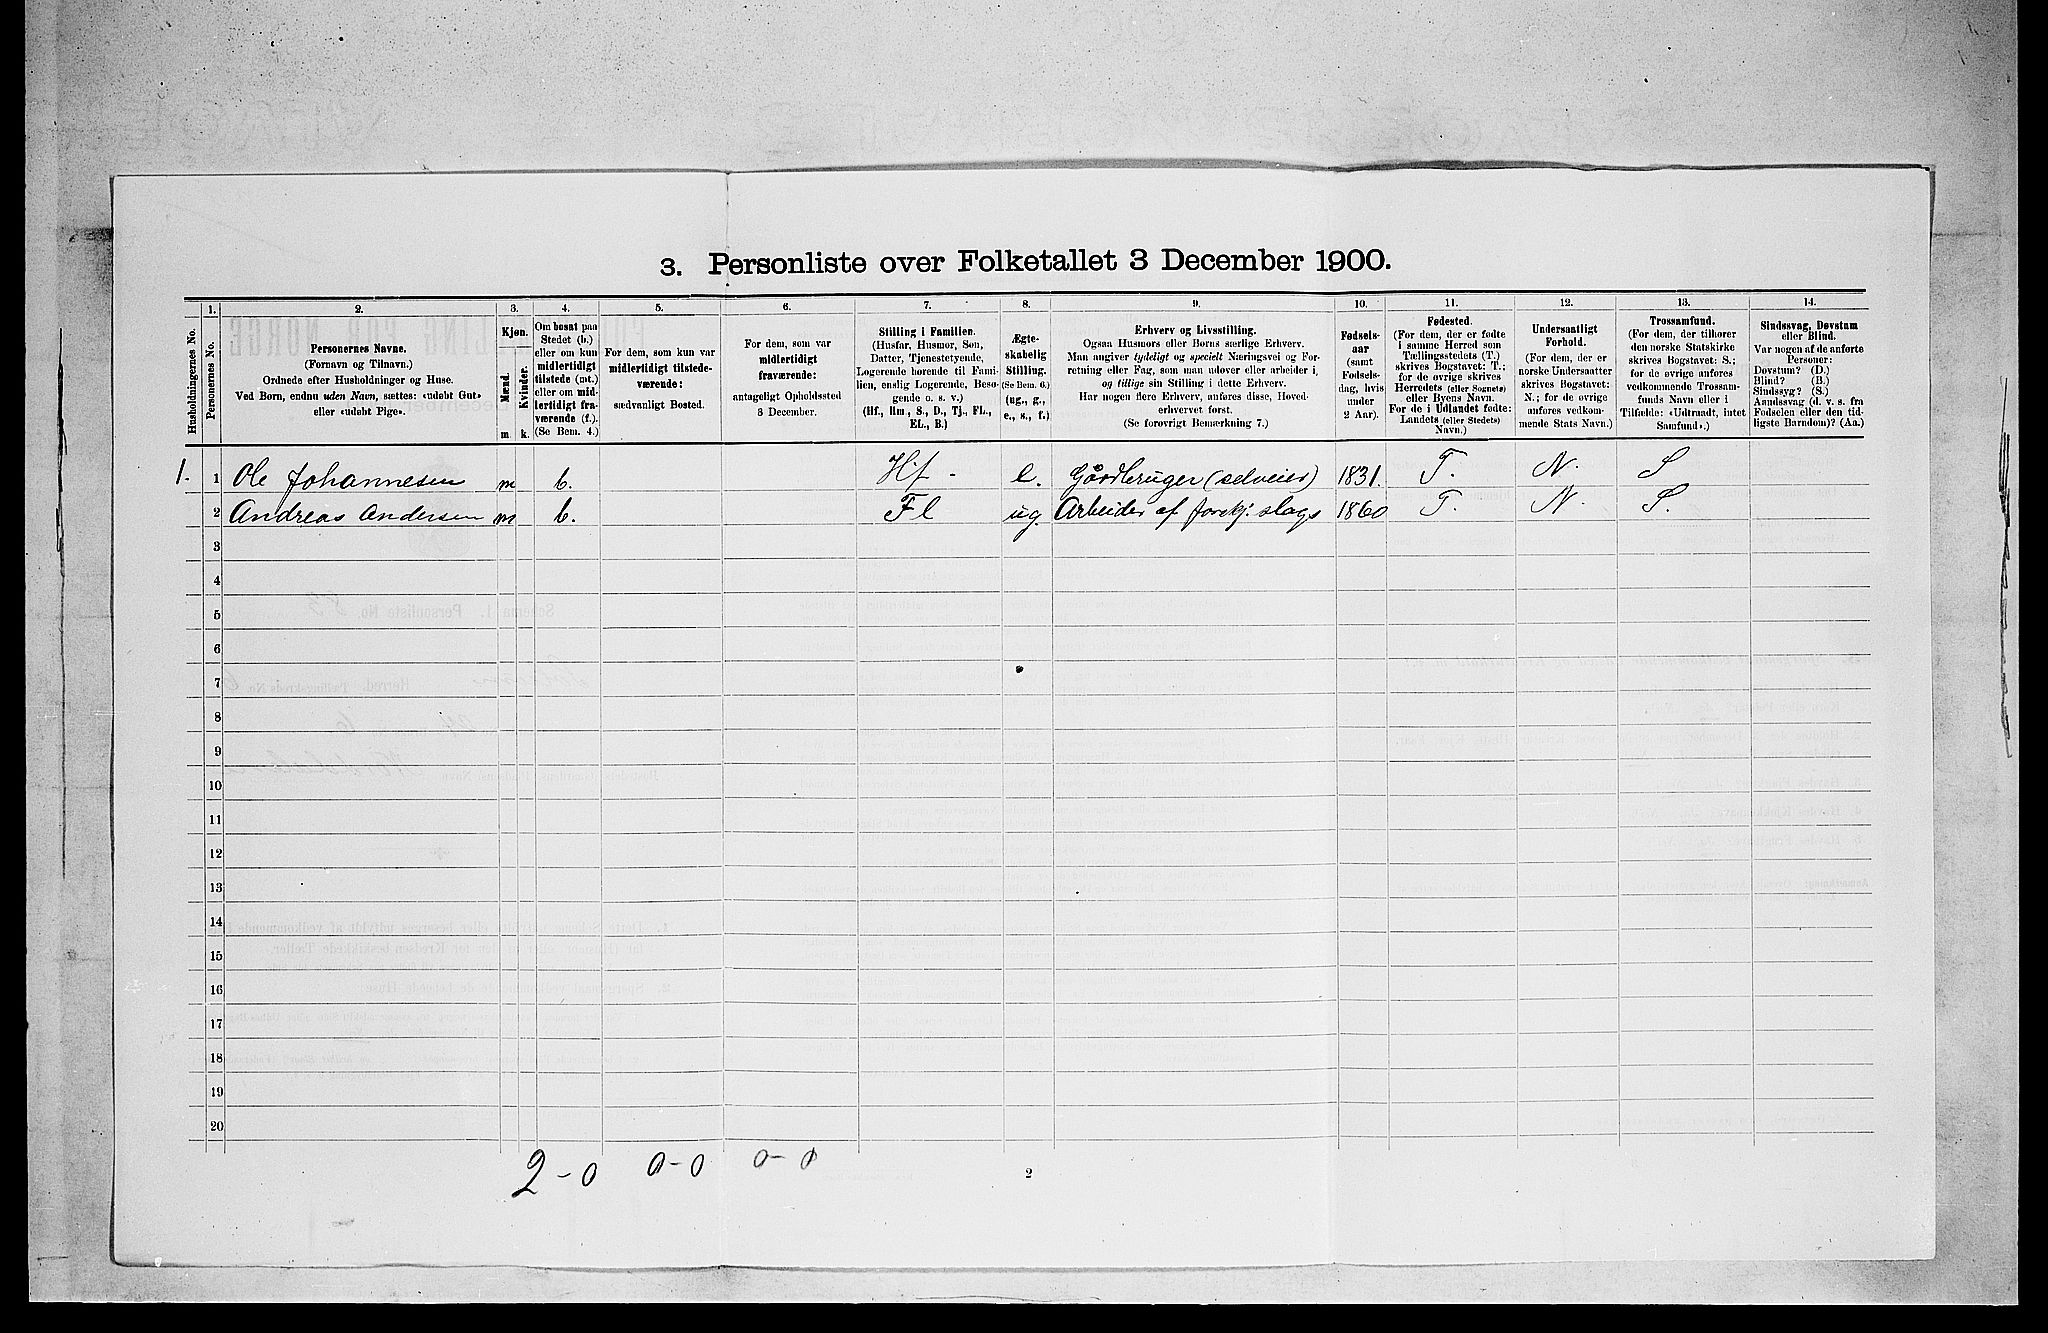 3. Personliste over Folketallet 3 December 1900.
Husholdningernes No.
1.
Personernes No.
2.
Personernes Navne.
(Fornavn og Tilnavn.)
Ordnede efter Husholdninger og Huse.
Ved Børn, endnu uden Navn, sættes: «udøbt Gut»
eller «udøbt Pige».
3.
Kjøn.
Mænd.
Kvinder.
m. k.
4.
Om bosat paa
Stedet (b.)
eller om kun
midlertidigt
tilstede (mt.)
eller om mid-
lertidigt fra-
værende (f.).
(Se Bem. 4.)
5.
For dem, som kun var
midlertidigt tilstede-
værende:
sædvanligt Bosted.
6.
For dem, som var
midlertidigt
fraværende:
antageligt Opholdssted
3 December.
7.
Stilling i Familien.
(Husfar, Husmor, Søn,
Datter, Tjenestetyende,
Logerende hørende til Fami-
lien, enslig Logerende, Besø-
gende o. s. v.)
(Hf., Hm., S., D., Tj., FL.,
EL., B.)
8.
Ægte-
skabelig
Stilling.
(Se Bem. 6.)
(ug., g.,
e., s., f.)
9.
Erhverv og Livsstilling.
Ogsaa Husmors eller Børns særlige Erhverv.
Man angiver tydeligt og specielt Næringsvei og For-
retning eller Fag, som man udøver eller arbeider i,
og tillige sin Stilling i dette Erhverv.
Har nogen flere Erhverv, anføres disse, Hoved-
erhvervet først.
(Se forøvrigt Bemærkning 7.)
10.
Fødsels-
aar
(samt
Fødsels-
dag, hvis
under
2 Aar).
11.
Fødested.
(For dem, der er fødte
i samme Herred som
Tællingsstedets (T.)
skrives Bogstavet: T.;
for de øvrige skrives
Herredets (eller Sognets)
eller Byens Navn.
For de i Udlandet fødte:
Landets (eller Stedets)
Navn.)
12.
Undersaatligt
Forhold.
(For dem, der er
norske Undersaatter
skrives Bogstavet:
N.; for de øvrige
anføres vedkom-
mende Stats Navn.)
13.
Trossamfund.
(For dem, der tilhører
den norske Statskirke
skrives Bogstavet: S.;
for de øvrige anføres
vedkommende Trossam-
funds Navn eller i
Tilfælde: «Udtraadt, intet
Samfund».)
14.
Sindssvag, Døvstum
eller Blind.
Var nogen af de anførte
Personer:
Døvstum? (D.)
Blind? (B.)
Sindssyg? (S.)
Aandssvag (d. v. s. fra
Fødselen eller den tid-
ligste Barndom)? (Aa.)
1. 1 Ole Johannesen m b. Hf - e. Gårdbruger (selveier) 1831. T. N. S
2 Andreas Andersen m b. Fl ug. Arbeider af forskj. slags 1860 T. N. S.
3
4
5
6
7
8
9
10
11
12
13
14
15
16
17
18
19
20
2-0 0-0 0-0
2